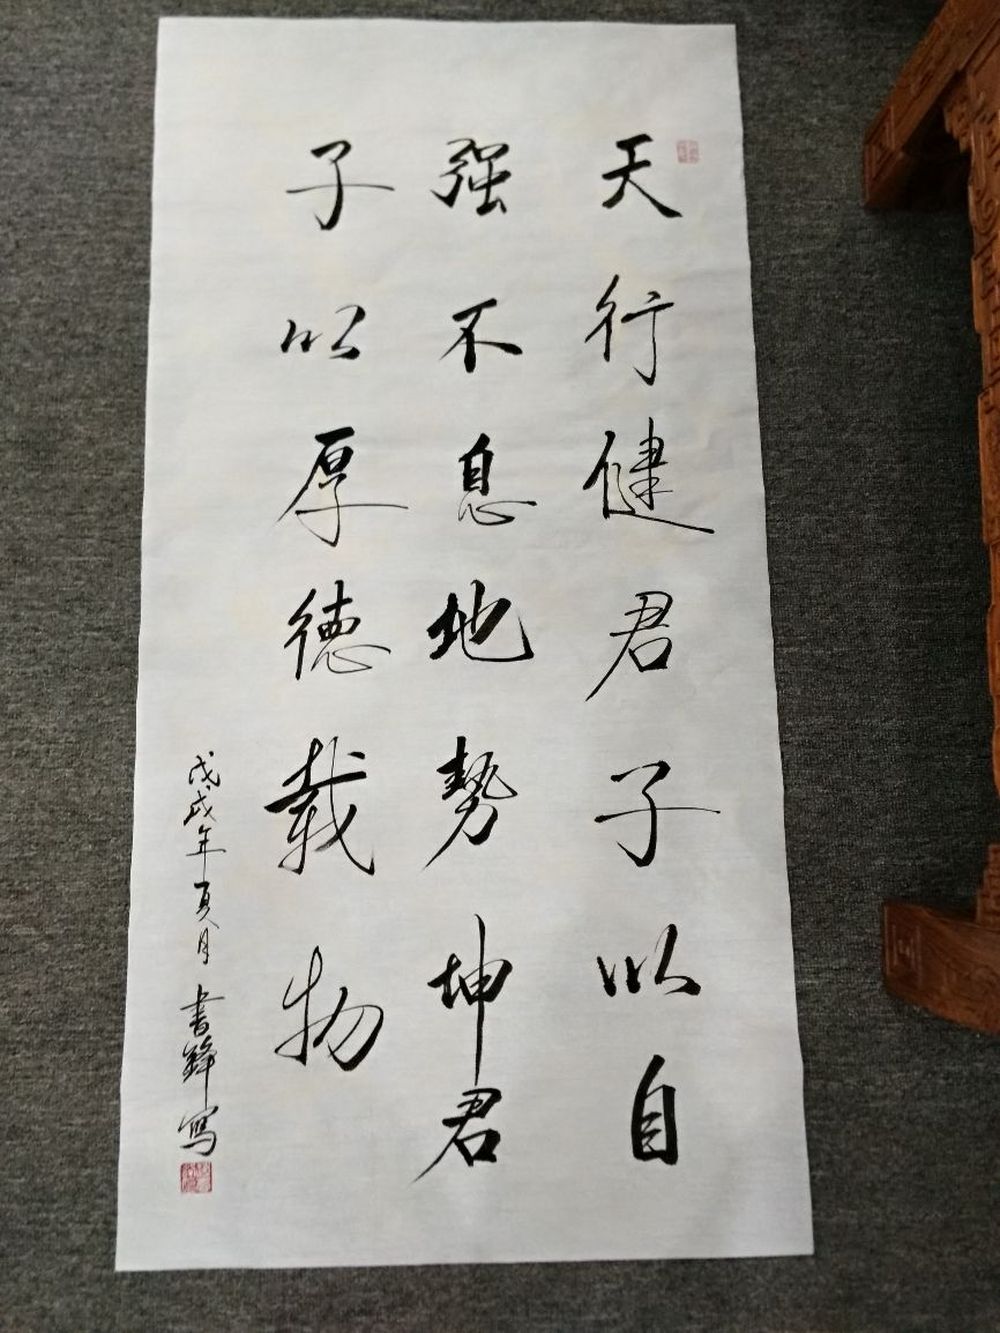 天行健君子以自
强不息地势坤君
子以厚德载物
戊戌年夏月书锋写